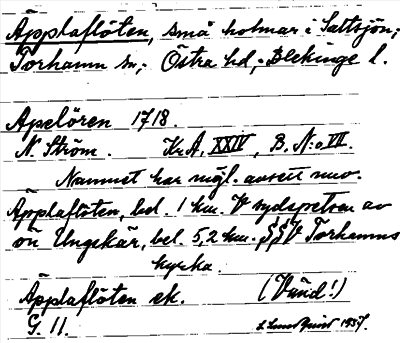 Äpplaflöten, små holmar i Saltsjön;
Torhamn sn; Östra hd, Blekinge l.
Apelören 1718.
N. Ström. KrA, XXIV, B. N:o VII.
Namnet har möjl. avsett nuv.
Äpplaflöten, bel. 1 km. V sydspetsen av
ön Ungskär, bel. 5,2 km. SSV Torhamns
kyrka.
Äpplaflöten ek. (Vänd!)
G. 11. Lundquist 1937.